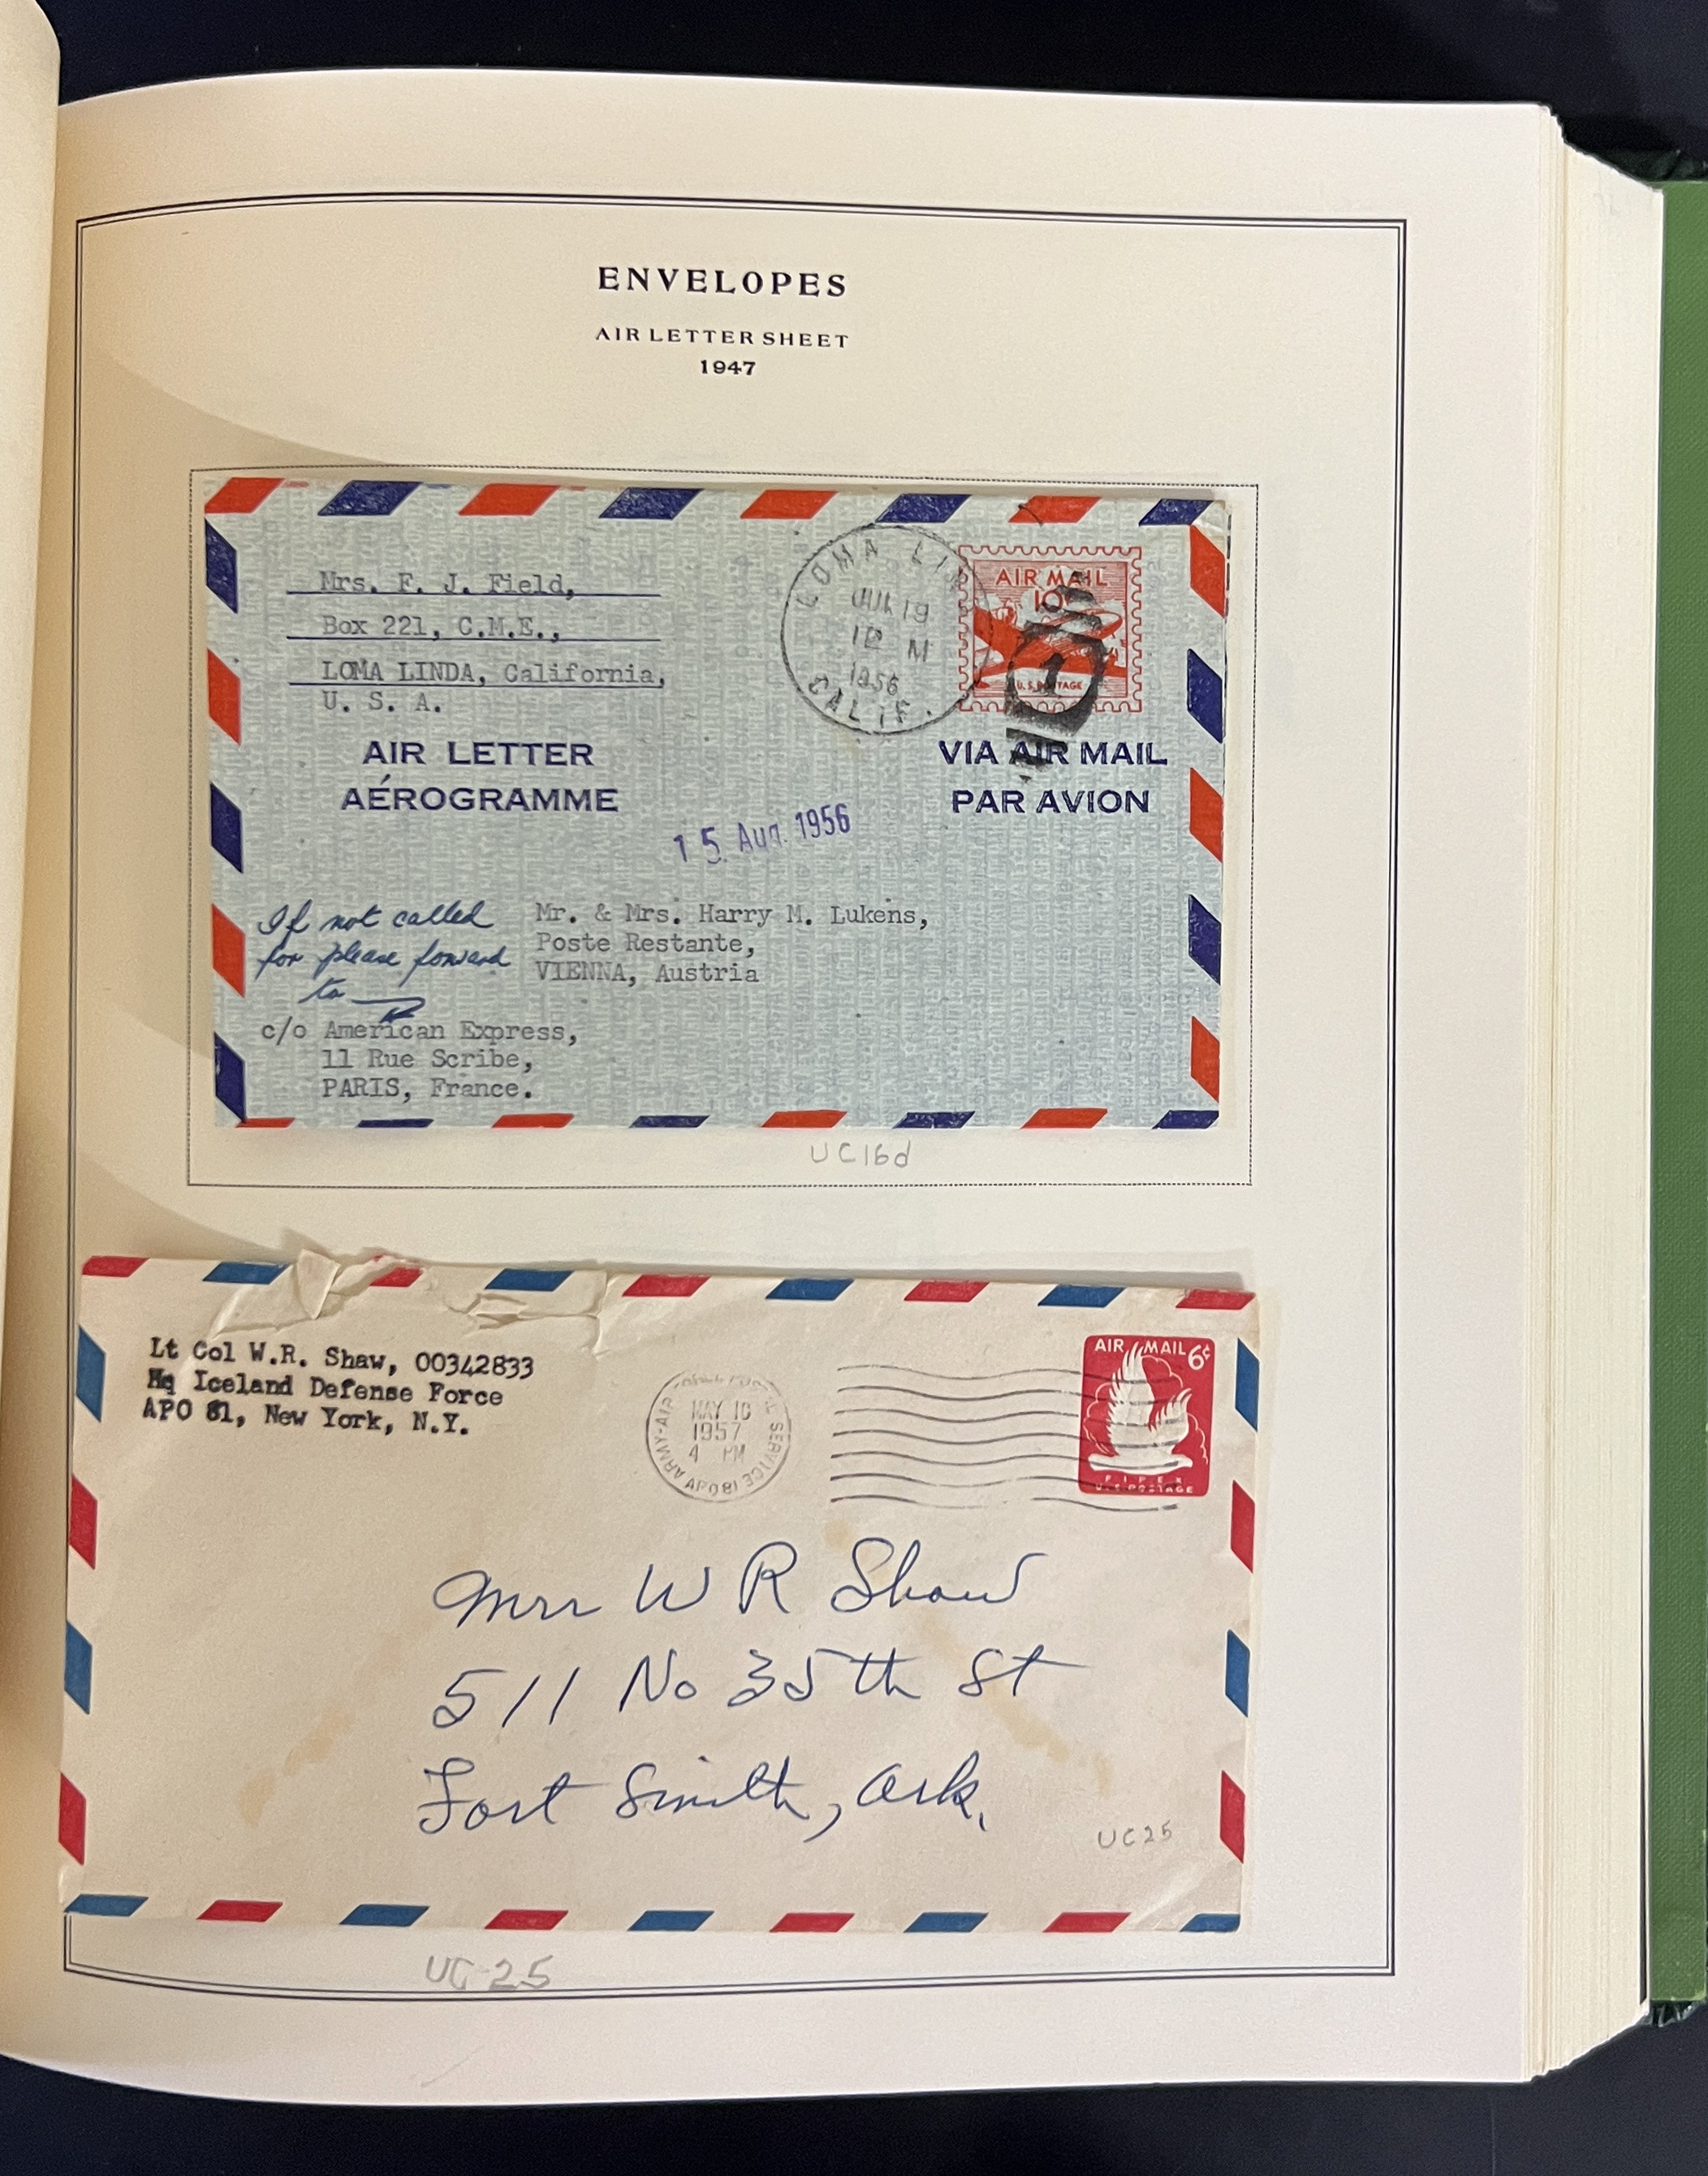 ENVELOPES
AIR LETTER SHEET
1947
Mrs. F. J. Field,
Box 221, C.M.E.,
LOMA LINDA, California,
U. S. A.
LOMA LIN
19
M
1956
CALIF.
AIR MAIL
10¢
1
U.S. POSTAGE
AIR LETTER
AÉROGRAMME
VIA AIR MAIL
PAR AVION
15. Aug. 1956
If not called
for please forward
to
Mr. & Mrs. Harry M. Lukens,
Poste Restante,
VIENNA, Austria
c/o American Express,
11 Rue Scribe,
PARIS, France.
UC16d
Lt Col W.R. Shaw, 00342833
Hq Iceland Defense Force
APO 81, New York, N.Y.
ARMY-AIR SERVICE
MAY 10
1957
4 PM
APO 81
AIR MAIL 6¢
FIPEX
U.S. POSTAGE
Mrs W R Shaw
511 No 35th St
Fort Smith, Ark.
UC25
UC-25